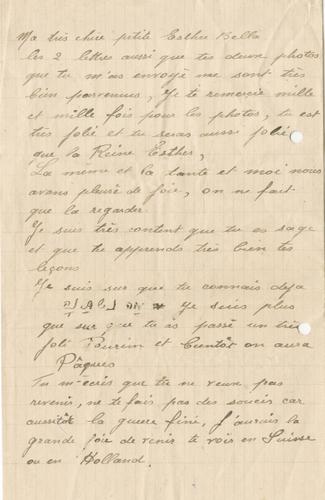 Ma très chère petite Esther Bella
les 2 lettres aussi que tes deux photos
que tu m'as envoyé me sont très
bien parvenues, Je te remercie mille
et mille fois pour les photos, tu est
très jolie et tu seras aussi jolie
que la Reine Esther,
La meme et la tante et moi nous
avons pleuré de joie, on ne fait
que la regarder.
Je suis très content que tu es sage
et que tu apprends très bien tes
leçons
Je suis sur que tu connais deja
Je suis plus
que sur que tu as passé un très
joli Pourim et bientôt on aura
Pâques
Tu m'ecris que tu ne veux pas
revenir, ne te fais pas des soucis car
aussitôt la guere finie, j'aurais la
grande joie de venir te voir en Suisse
ou en Holland.